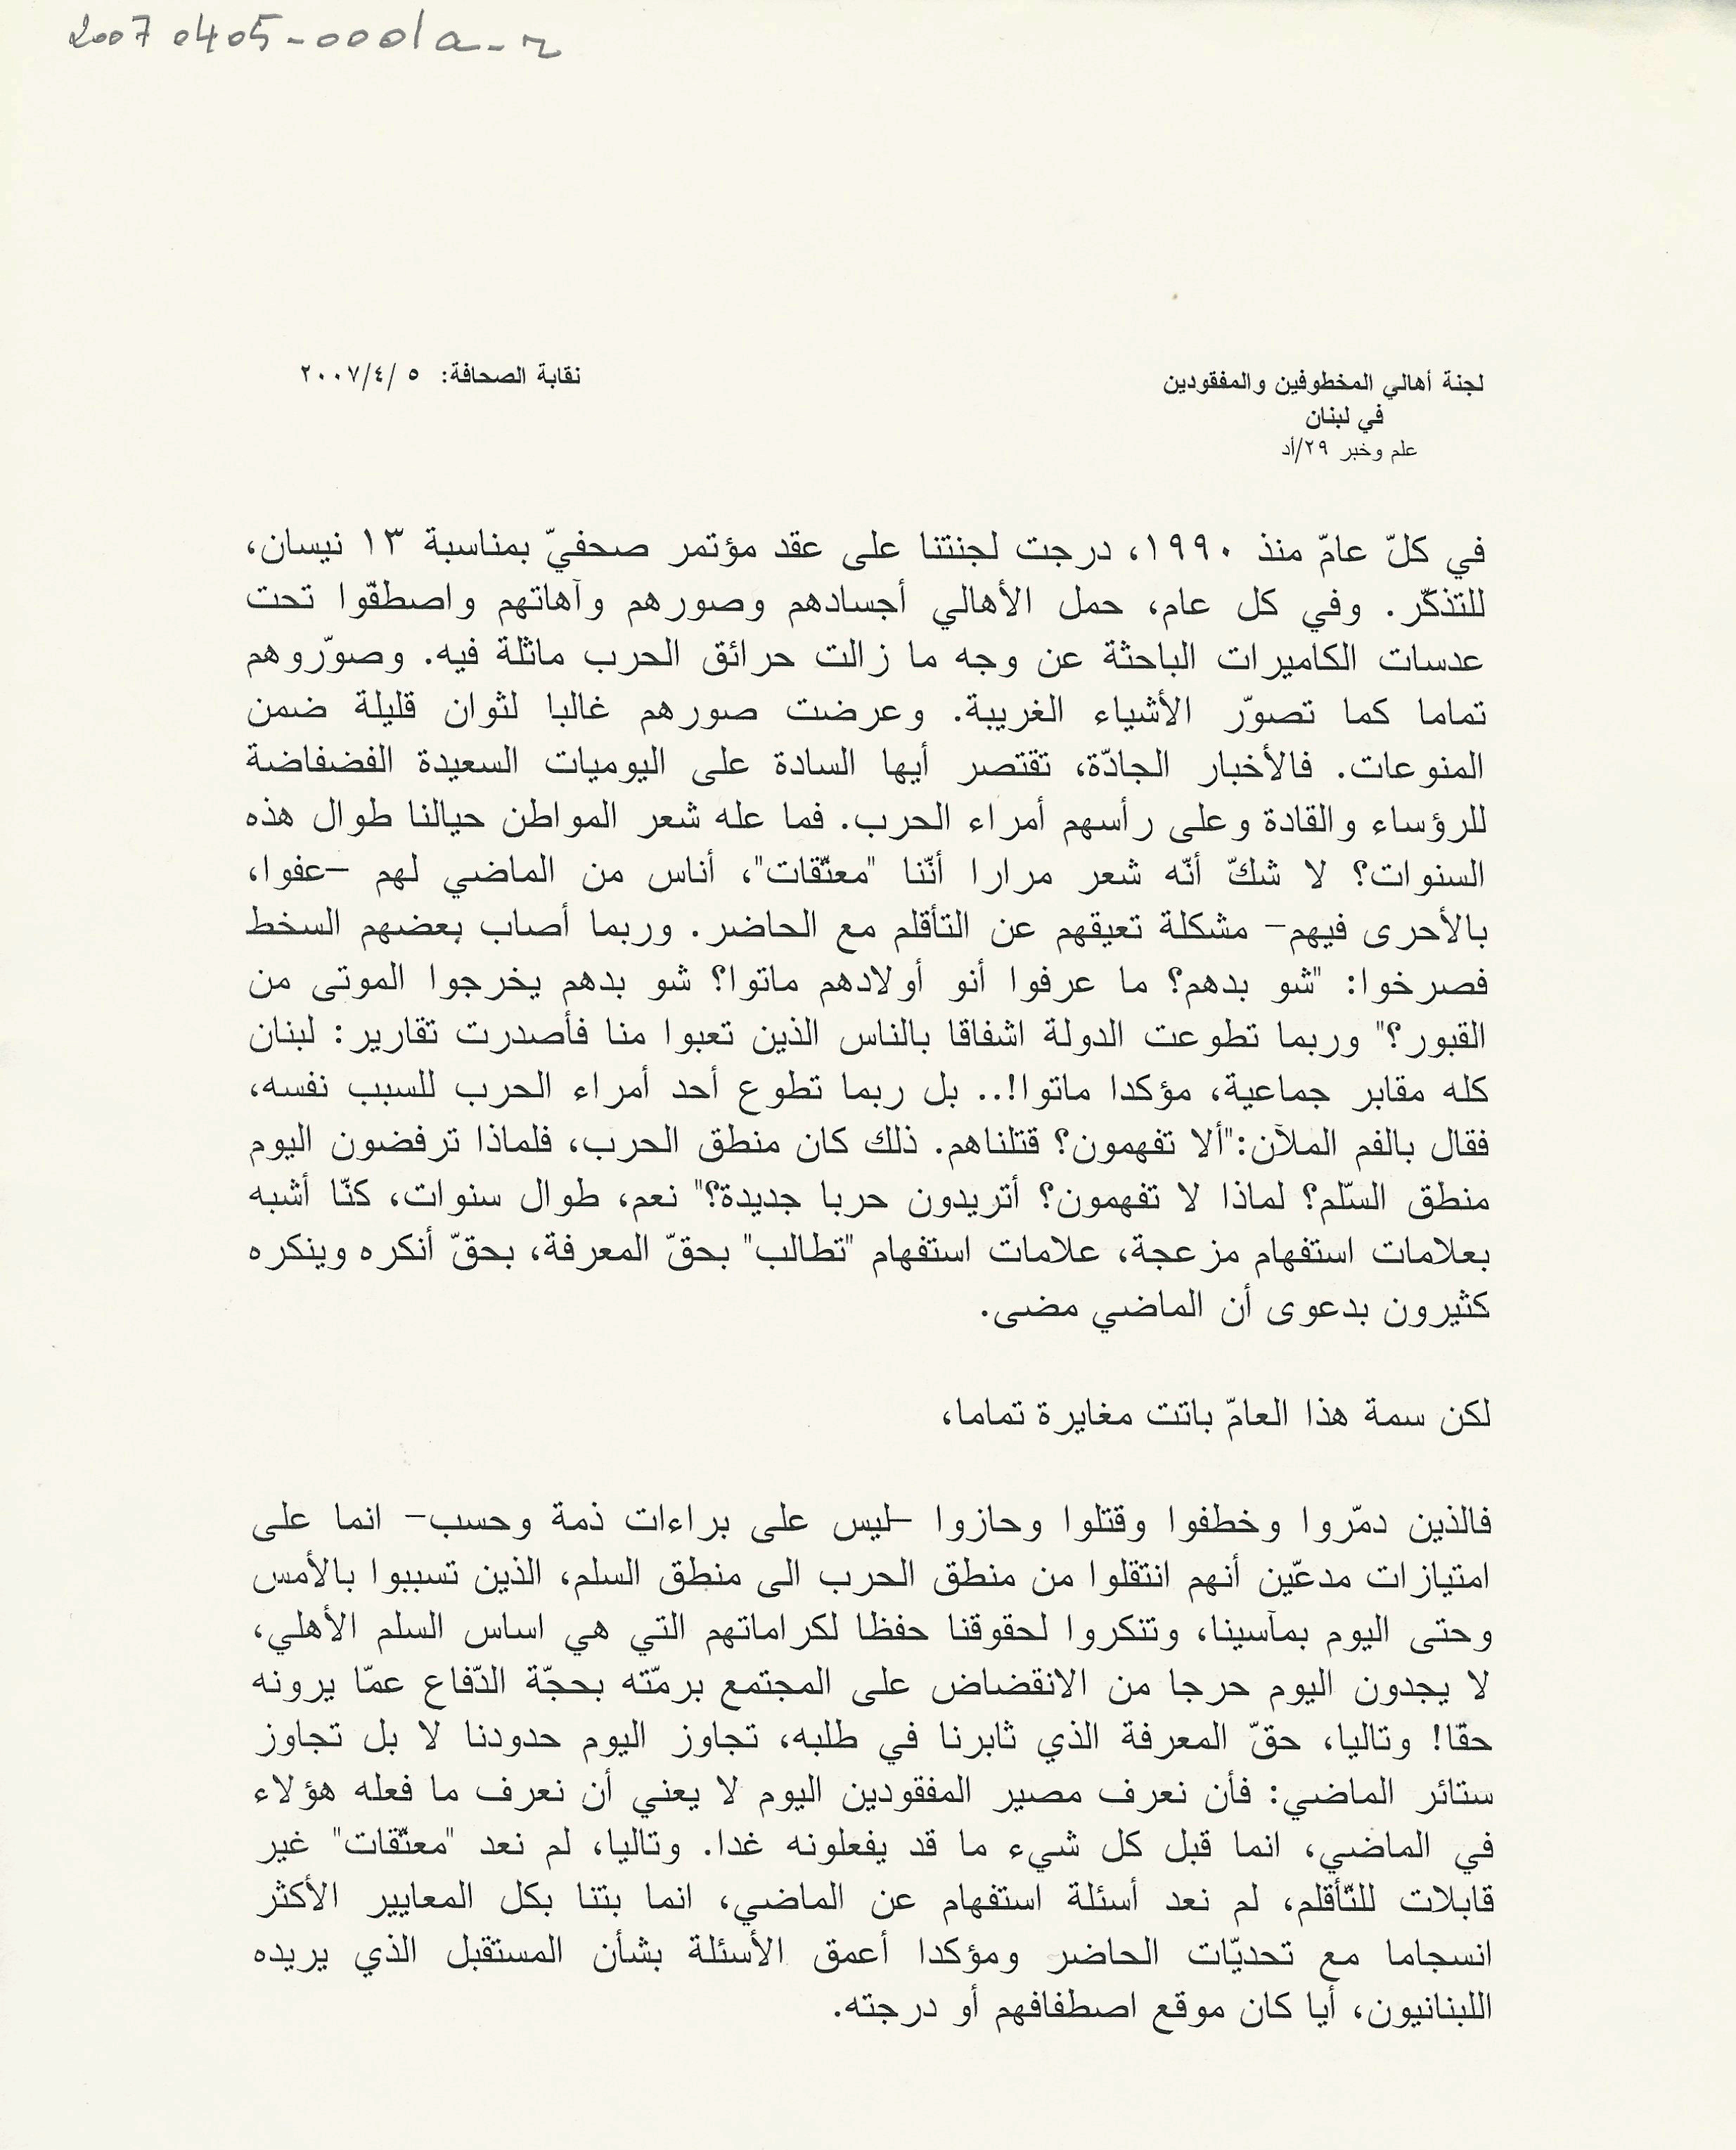 2007 0405-0001a-r
لجنة أهالي المخطوفين والمفقودين
في لبنان
علم وخبر ٢٩/أد
نقابة الصحافة: ٥ /٤/٢٠٠٧
في كلّ عامّ منذ ١٩٩٠، درجت لجنتنا على عقد مؤتمر صحفيّ بمناسبة ١٣ نيسان،
للتذكّر. وفي كل عام، حمل الأهالي أجسادهم وصورهم وآهاتهم واصطفّوا تحت
عدسات الكاميرات الباحثة عن وجه ما زالت حرائق الحرب ماثلة فيه. وصوّروهم
تماما كما تصوّر الأشياء الغريبة. وعرضت صورهم غالبا لثوان قليلة ضمن
المنوعات. فالأخبار الجادّة، تقتصر أيها السادة على اليوميات السعيدة الفضفاضة
للرؤساء والقادة وعلى رأسهم أمراء الحرب. فما عله شعر المواطن حيالنا طوال هذه
السنوات؟ لا شكّ أنّه شعر مرارا أنّنا "معتّقات"، أناس من الماضي لهم –عفوا،
بالأحرى فيهم– مشكلة تعيقهم عن التأقلم مع الحاضر. وربما أصاب بعضهم السخط
فصرخوا: "شو بدهم؟ ما عرفوا أنو أولادهم ماتوا؟ شو بدهم يخرجوا الموتى من
القبور؟" وربما تطوعت الدولة اشفاقا بالناس الذين تعبوا منا فأصدرت تقارير: لبنان
كله مقابر جماعية، مؤكدا ماتوا!.. بل ربما تطوع أحد أمراء الحرب للسبب نفسه،
فقال بالفم الملآن:"ألا تفهمون؟ قتلناهم. ذلك كان منطق الحرب، فلماذا ترفضون اليوم
منطق السّلم؟ لماذا لا تفهمون؟ أتريدون حربا جديدة؟" نعم، طوال سنوات، كنّا أشبه
بعلامات استفهام مزعجة، علامات استفهام "تطالب" بحقّ المعرفة، بحقّ أنكره وينكره
كثيرون بدعوى أن الماضي مضى.
لكن سمة هذا العامّ باتت مغايرة تماما،
فالذين دمّروا وخطفوا وقتلوا وحازوا –ليس على براءات ذمة وحسب– انما على
امتيازات مدعّين أنهم انتقلوا من منطق الحرب الى منطق السلم، الذين تسببوا بالأمس
وحتى اليوم بمآسينا، وتنكروا لحقوقنا حفظا لكراماتهم التي هي اساس السلم الأهلي،
لا يجدون اليوم حرجا من الانقضاض على المجتمع برمّته بحجّة الدّفاع عمّا يرونه
حقا! وتاليا، حقّ المعرفة الذي ثابرنا في طلبه، تجاوز اليوم حدودنا لا بل تجاوز
ستائر الماضي: فأن نعرف مصير المفقودين اليوم لا يعني أن نعرف ما فعله هؤلاء
في الماضي، انما قبل كل شيء ما قد يفعلونه غدا. وتاليا، لم نعد "معتّقات" غير
قابلات للتّأقلم، لم نعد أسئلة استفهام عن الماضي، انما بتنا بكل المعايير الأكثر
انسجاما مع تحديّات الحاضر ومؤكدا أعمق الأسئلة بشأن المستقبل الذي يريده
اللبنانيون، أيا كان موقع اصطفافهم أو درجته.